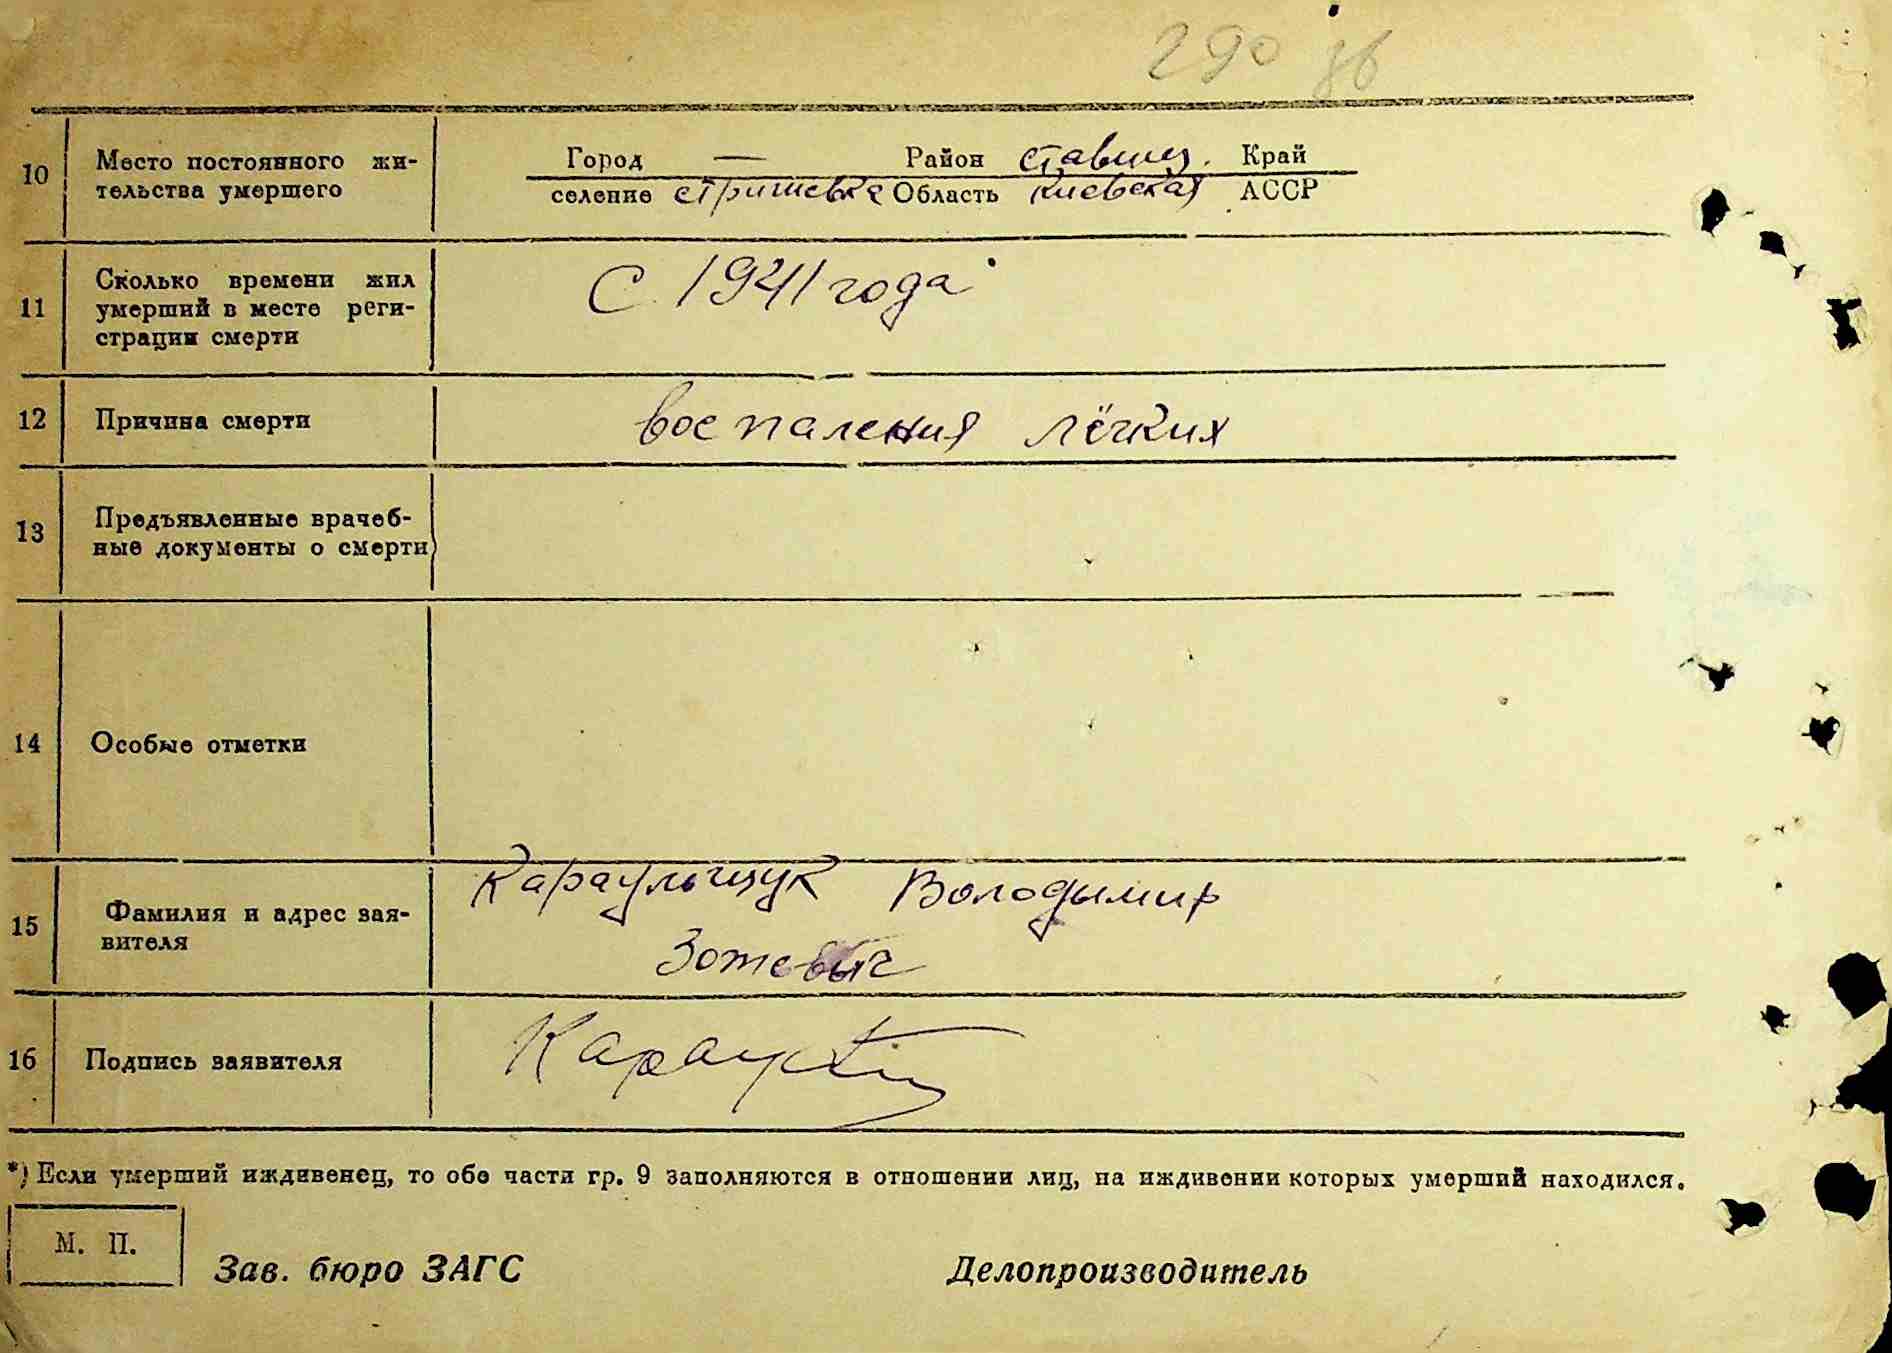 290 зв
10 Место постоянного жи-
тельства умершего
Город — Район ставищ. Край
селение стрижевка Область киевская АССР
11 Сколько времени жил
умерший в месте реги-
страции смерти
С 1941 года
12 Причина смерти воспаления лёгких
13 Предъявленные врачеб-
ные документы о смерти
14 Особые отметки
15 Фамилия и адрес зая-
вителя
Караульщук Володымир
Зотевыч
16 Подпись заявителя
*) Если умерший иждивенец, то обе части гр. 9 заполняются в отношении лиц, на иждивении которых умерший находился.
М. П.
Зав. бюро ЗАГС Делопроизводитель